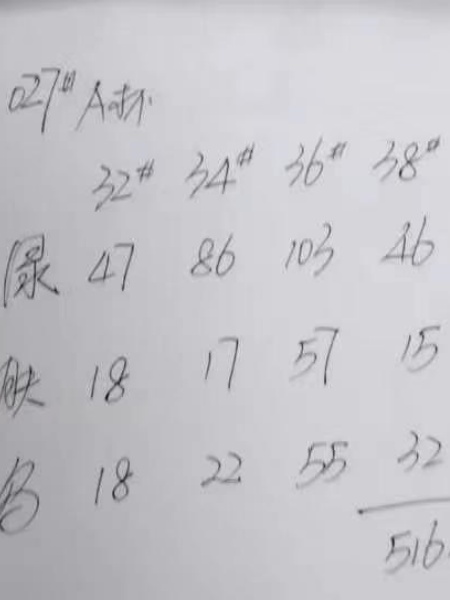 027# A杯
32# 34# 36# 38#
绿 47 86 103 46
肤 18 17 57 15
18 22 55 32
516